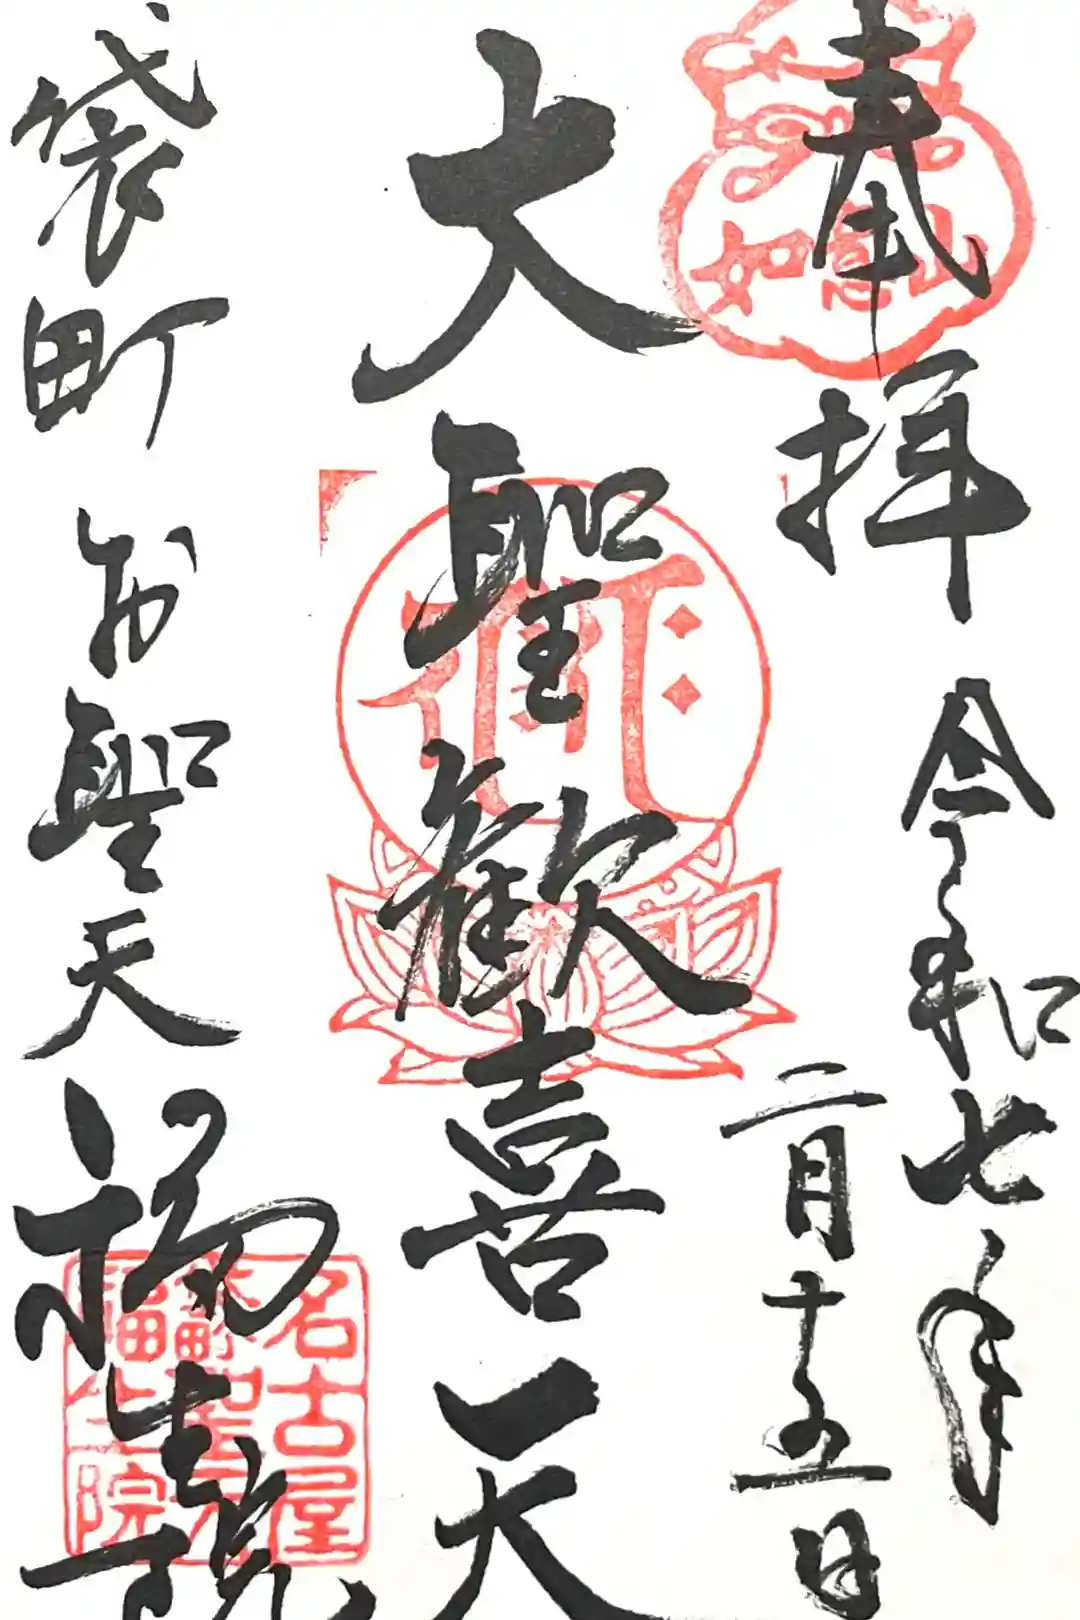 奉拝
如意山
令和七年
二月十五日
大聖歓喜天
袋町
お聖天
福生院
名古屋
袋町聖天
福生院